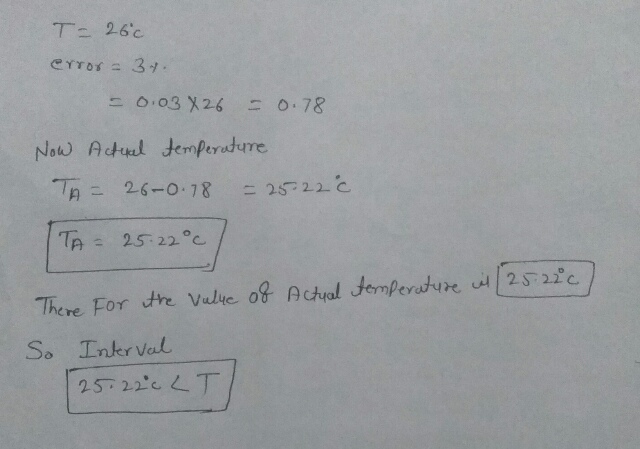 T = 26°C
error = 3%.
= 0.03 X 26 = 0.78
Now Actual temperature
TA = 26-0.78 = 25.22°C
TA = 25.22°C
There For the Value of Actual temperature is 25.22°C
So Interval
25.22°C < T